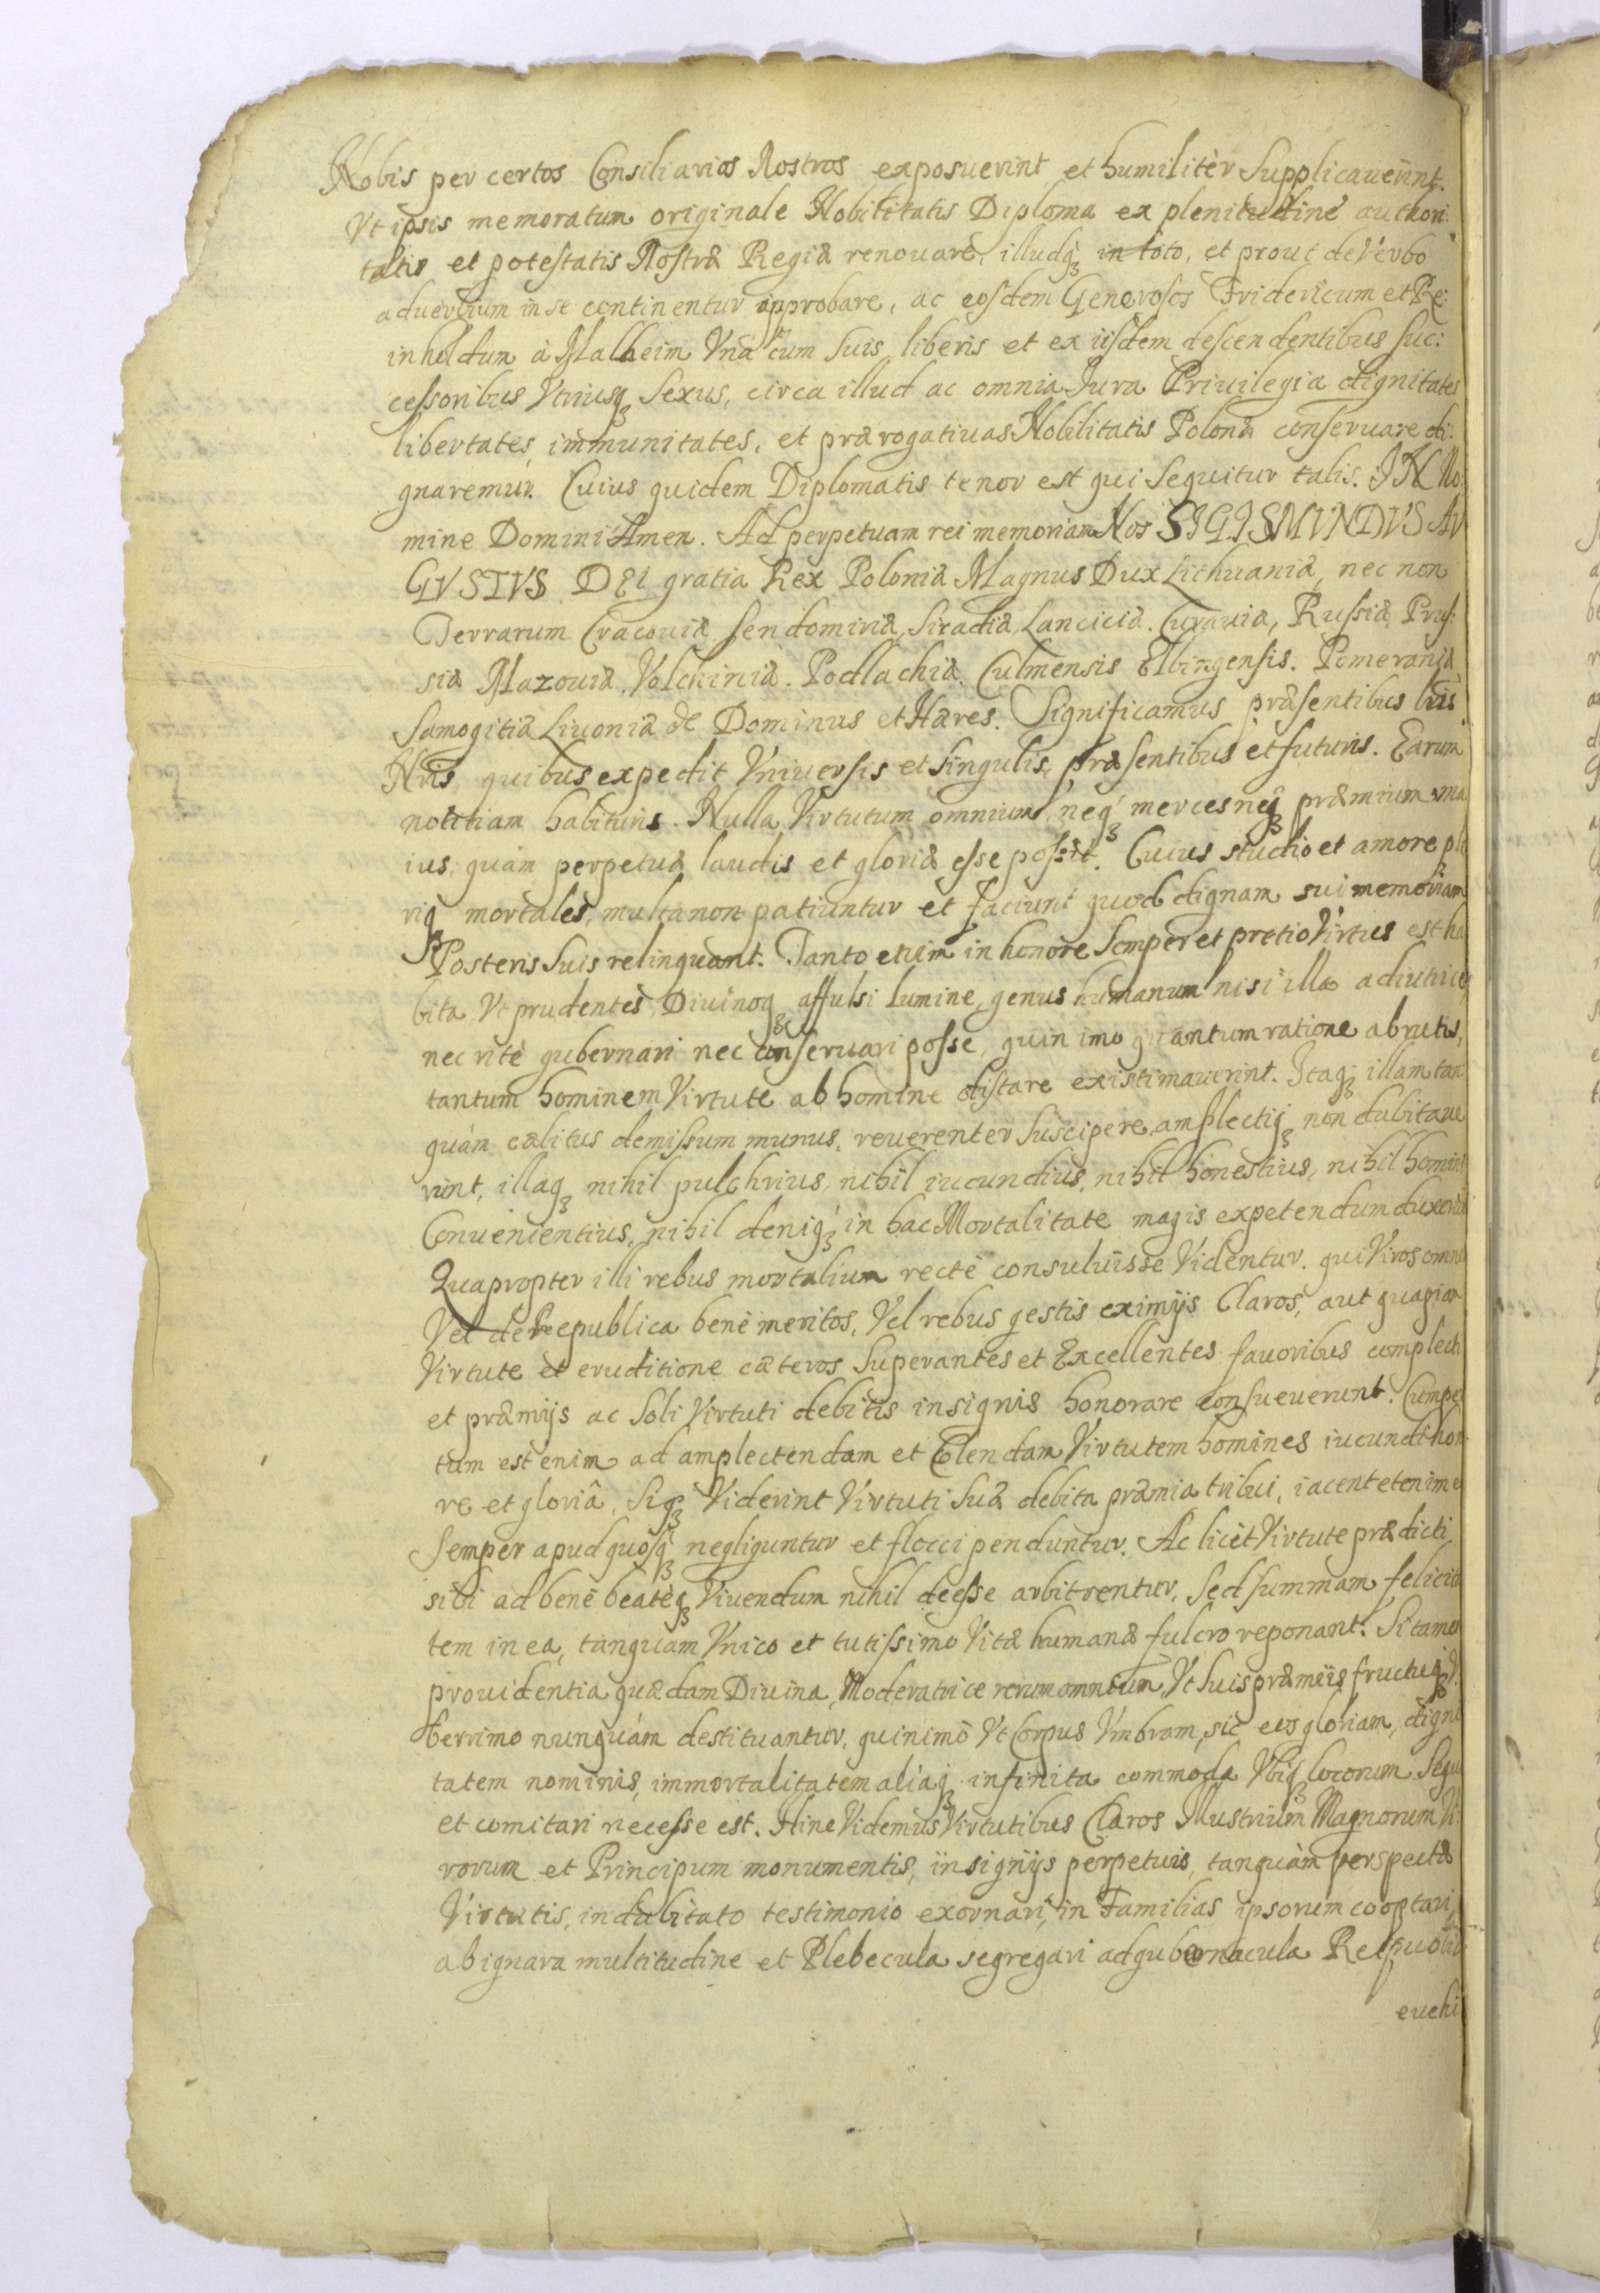 Nobis per certos Consiliarios Nostros exposuerint et humilitèr Supplicauerint.
Vt ipsis memoratum originale Nobilitatis Diploma ex plenitudine authori:
tatis et potestatis Nostræ Regiæ renouare, illudq́ꝫ in toto, et prout de Verbo
ad uerbum in se continentur approbare, ac eosdem Generosos Fridericum et Re:
inholdum à Malheim Vnà cum suis liberis et ex iisdem descendentibus suc:
cessoribus Vtriusqꝫ Sexus, circa illud ac omnia Iura Priuilegia dignitates
libertates, immunitates, et prærogatiuas Nobilitatis Polonæ conseruare di:
gnaremur. Cuius quidem Diplomatis tenor est qui Sequitur talis. IN No:
mine Domini Amen. Ad perpetuam rei memoriam Nos SIGISMVNDVS AV
GVSTVS DEI gratia Rex Poloniæ Magnus Dux Lithuaniæ, nec non
Terrarum Cracouiæ Sendomiriæ, Siradiæ Lanciciæ. Cuiauiæ, Russiæ, Prus:
siæ Mazouiæ, Volchiniæ. Podlachiæ. Culmensis Elbingensis. Pomeraniæ
Samogitiæ Liuoniæ &c Dominus et Hæres. Significamus præsentibus lris
Nris, quibus expedit Vniuersis et singulis, præsentibus et futuris. Earum
notitiam habituris. Nulla Virtutum omnium neq́ꝫ merces neqꝫ præmium ma
ius, quàm perpetuæ laudis et gloriæ esse posset. Cuius studio et amore ple
riqꝫ mortales, multa non patiuntur et faciunt quod dignam sui memoriam
Posteris suis relinquant. Tanto etiim in honore Semper et pretio Virtus est ha
bita Vt prudentes Diuinoqꝫ affulsi lumine, genus humanum nisi illa adiutrice,
nec ritè gubernari nec conseruari posse, quin imo quantum ratione a brutis,
tantum hominem Virtute ab homine distare existimauerint. Itaqꝫ illam tan
quàm cælitus demissum munus, reuerenter suscipere, amplectiqꝫ non dubitaue
runt, illaqꝫ nihil pulchrius, nihil iucundius, nihil honestius, nihil homini
Conuenientius, nihil deniq́ꝫ in hac Mortalitate magis expetendum duxerunt
Quapropter illi rebus mortalium rectè consuluisse Videntur. qui Viros omnes
Vel de Republica benè meritos, Vel rebus gestis eximijs Claros, aut quapiam
Virtute et eruditione cæteros Superantes et Excellentes fauoribus complecti
et præmijs ac Soli Virtuti debitis insignis honorare consueuerunt. Compe
tum est enim ad amplectendam et Colendam Virtutem homines iucundi hono
re et gloriâ, Siqꝫ Viderint Virtuti suæ debita præmia tribui, iacent etenim ea
Semper apud quosqꝫ negliguntur et flocci penduntur. Ac licèt Virtute prædicti
sibi ad benè beatèqꝫ Viuendum nihil deesse arbitrentur, Sed summam felicita
tem in ea, tanquam Vnico et tutissimo Vitæ humanæ fulcro reponant. Fit tamen
prouidentia quædam Diuina, Moderatrice rerum omnium, Vt suis præmiis fructuqꝫ V:
berrimo nunquàm destituantur, quinimò Vt Corpus Vmbram, sic eos gloriam, digni
tatem nominis, immortalitatem aliáqꝫ infinita commoda Vbiqꝫ locorum Sequi
et comitari necesse est. Hinc Videmus Virtutibus Claros Illustrium Magnorum Vi
rorum et Principum monumentis, insignijs perpetuis, tanquàm perspectæ
Virtutis, indubitato testimonio exornari, in Familias ipsorum cooptari,
ab ignara multitudine et Plebecula segregari ad gubernacula Reipublicæ
euehi